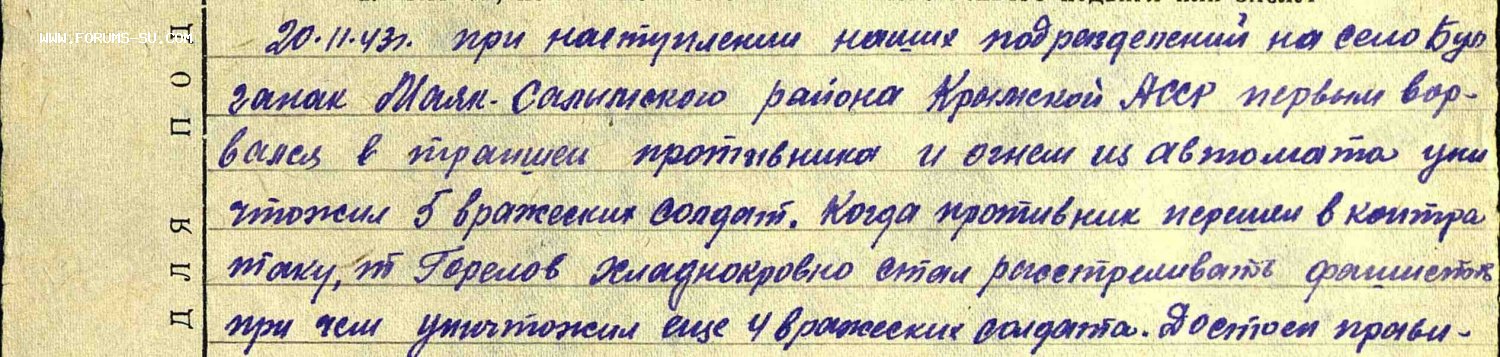 WWW.FORUMS-SU.COM
ДЛЯ ПОД
20.11.43г. при наступлении наших подразделений на село Бул
ганак Маяк-Салынского района Крымской АССР первым вор-
вался в траншеи противника и огнем из автомата уни
чтожил 5 вражеских солдат. Когда противник перешел в контра
таку, т Горелов хладнокровно стал расстреливать фашистов
при чем уничтожил еще 4 вражеских солдата. Достоен прави-